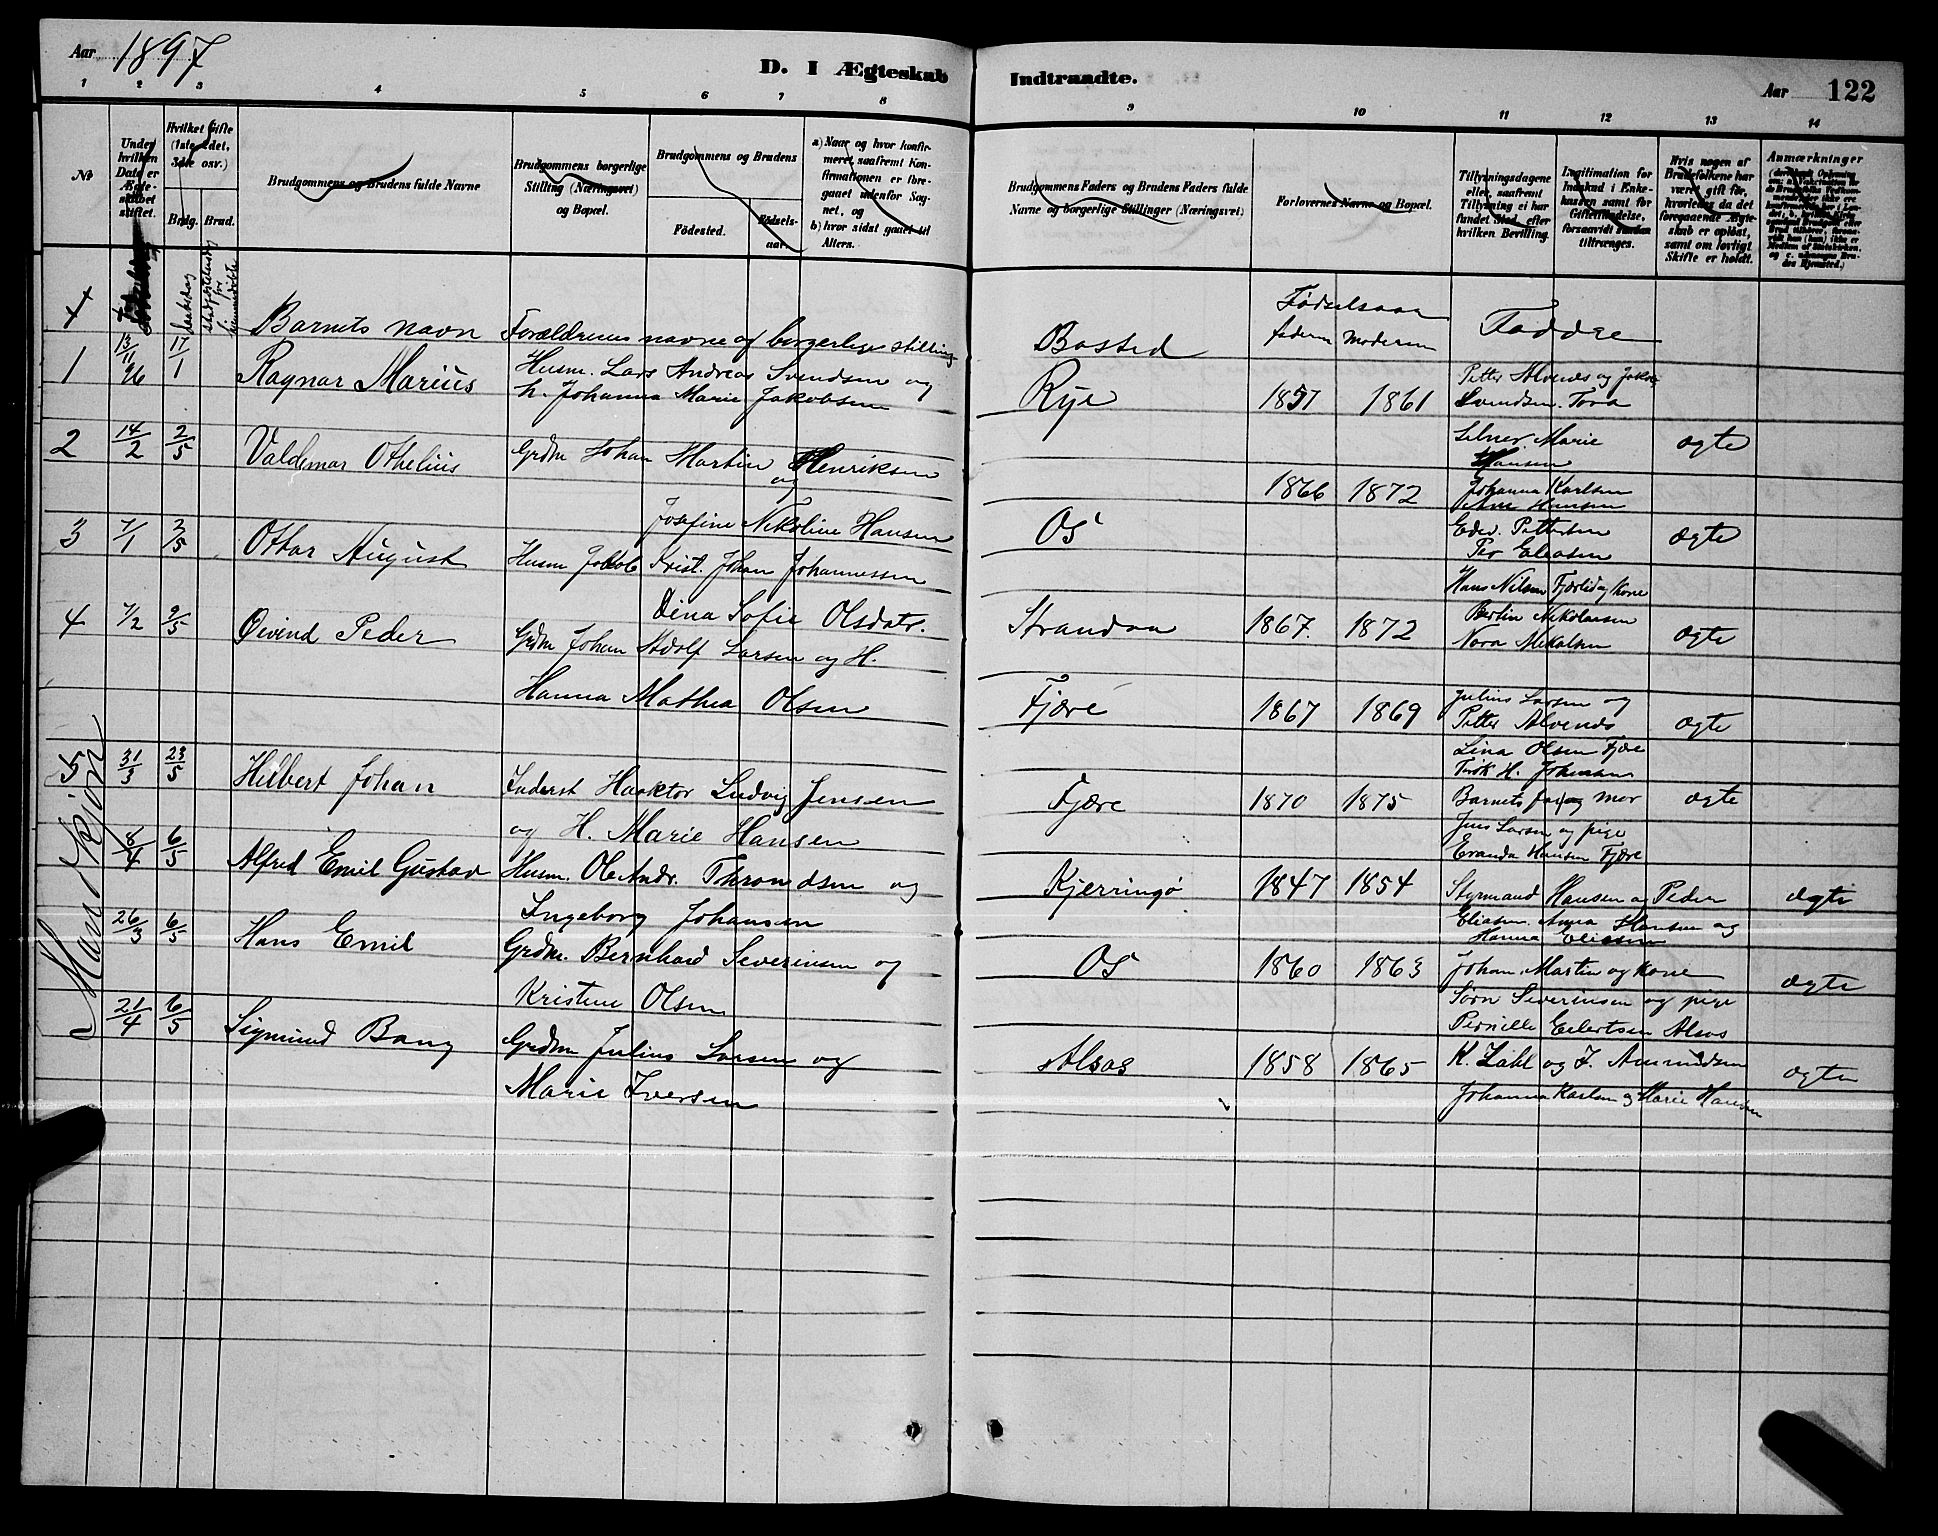 Aar 1897
D. I Ægteskab Indtraadte.
Aar 122
1 2 3 4 5 6 7 8 9 10 11 12 13 14
№
Under hvilken Dato er Ægteskabet stiftet.
Hvilket Gifte (1ste, 2det, 3die osv.)
Brdg. Brud.
Brudgommens og Brudens fulde Navne
Brudgommens borgerlige Stilling (Næringsvei) og Bopæl.
Brudgommens og Brudens
Fødested.
Fødselsaar.
a) Naar og hvor konfirmeret, saafremt Konfirmationen er foregaaet udenfor Sognet, og
b) hvor sidst gaaet til Alters.
Brudgommens Faders og Brudens Faders fulde Navne og borgerlige Stillinger (Næringsvei)
Forlovernes Navne og Bopæl.
Tillysningsdagene eller, saafremt Tillysning ei har fundet Sted, efter hvilken Bevilling.
Legitimation for Indskud i Enkekassen samt for Giftetilladelse, forsaavidt saadan tiltrænges.
Hvis nogen af Brudefolkene har været gift før, hvorledes da det foregaaende Ægteskab er opløst, samt om lovligt Skifte er holdt.
Anmærkninger
Barnets navn Forældrenes navne og borgerlige stilling
Bosted
Fødselsaar
faderen moderen
Faddre
1 13/11 96 17/1 Ragnar Marius Husm. Lars Andreas Svendsen og
h. Johanna Marie Jakobsen
Rye 1857 1861
Petter Alvends og Jakob
Svendsen. Tora
Marie
Hansen
ægte
2 14/2 2/5 Valdemar Othelius Grdm Johan Martin Henriksen
og
Josefine Nikoline Hansen
Os 1866 1872
Johanna Karlsen
Hansen
Edv. Pettersen
Per Eliasen
ægte
3 7/1 2/5 Ottar August Husm Jakob Krist. Johan Johannessen
Dina Sofie Olsdatr.
Strandaa 1867. 1872
Hans Nilsen Fjærlid og kone
Bertin Nikolaisen
Nora Nikolsen
ægte
4 7/2 9/5 Øivind Peder Grdm Johan Adolf Larsen og H.
Hanna Mathea Olsen
Fjære 1867 1869
Julius Larsen og
Petter Alvends
Lina Olsen Fjære
H. Johansen
ægte
5 31/3 23/5 Hilbert Johan Inderst Haaktor Ludvig Jensen
og H. Marie Hansen
Fjære 1870 1875
Barnets far og mor
Jens Larsen og pige
Eranda Hansen Fjære
ægte
Mandkjøn
8/4 6/5 Alfred Emil Gustav Husm. Ole Andr. Throndsen og
Ingeborg Johansen
Kjerringø 1847 1854
Styrmand Hansen og Peder
Eliasen. Anna Hansen og
Hanna Eliasen
ægte
26/3 6/5 Hans Emil Grdm. Bernhard Severinsen og
Kristine Olsen
Os 1860 1863
Johan Martin og kone
Sørn Severinsen og pige
Pernille Eilertsen Alsos
ægte
21/4 6/5 Sigmund Bang Grdm Julius Larsen og
Marie Iversen
Alsos 1858 1865
K. Zahl og J. Amundsen
Johanna Karlsen og Marie Hansen
ægte